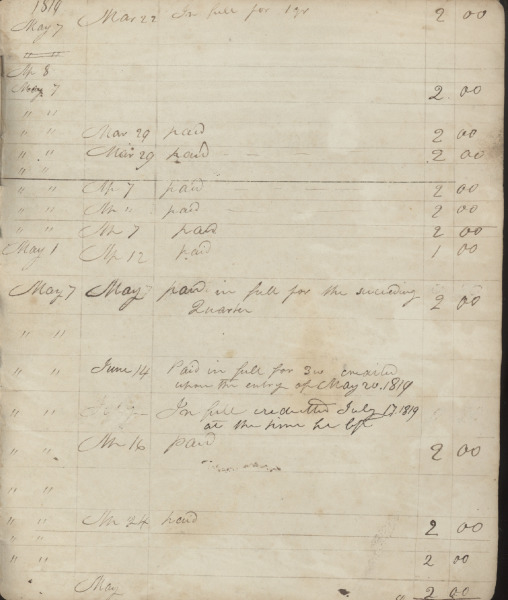 1819
May 7 Mar 22 In full for 1 qr 2 00
" "
Ap 8
May 7 2 00
" "
" " Mar 29 paid 2 00
" " Mar 29 paid — 2 00
" "
" " Ap 7 paid — — — 2 00
" " Ap " paid 2 00
" " Ap 7 paid 2 00
May 1 Ap 12 paid 1 00
May 7 May 7 paid in full for the succeeding 2 00
Quarter
" "
" " June 14 Paid in full for 3w credited
upon the entry of May 20. 1819
" " In full credited July 17 1819
at the time he left
" " Ap 16 paid 2 00
" "
" " Ap 24 paid 2 00
" "
" " 2 00
May " 2 00